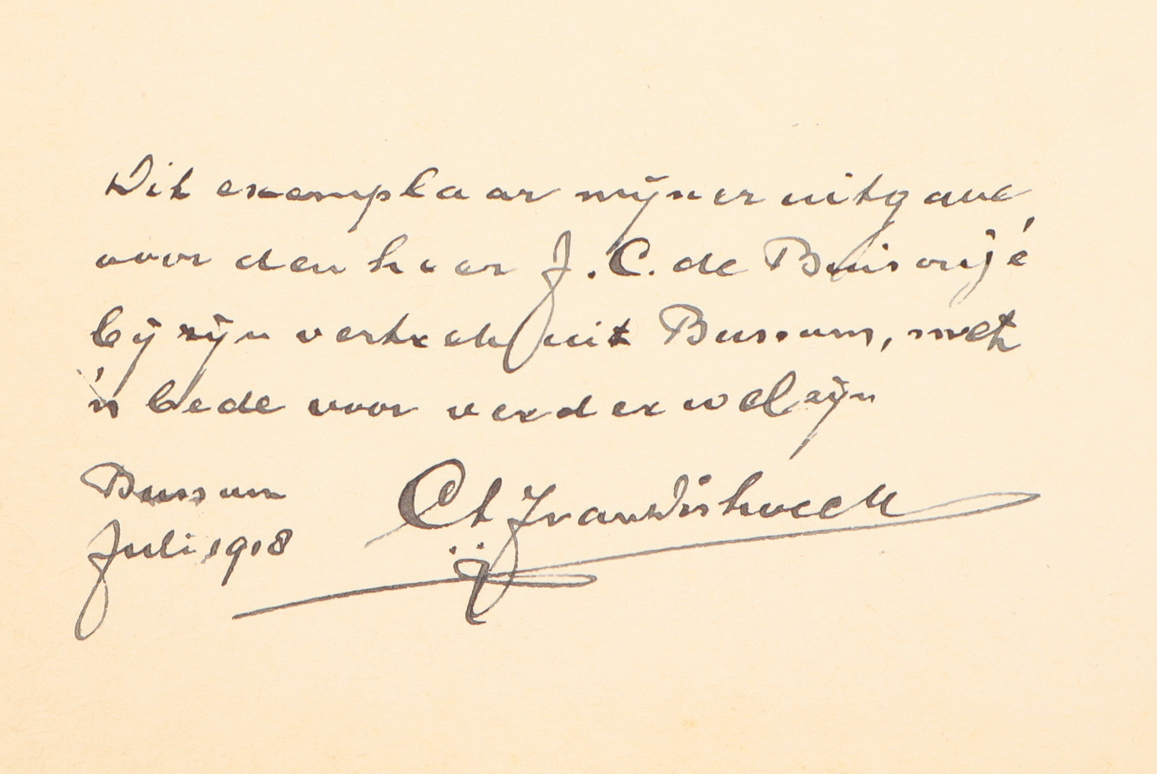 Dit exemplaar mijner uitgave
voor den heer J. C. de Buisonjé
bij zijn vertrek uit Bussum, met
'n bede voor verder welzijn
Bussum
Juli 1918
CAJ van Dishoeck